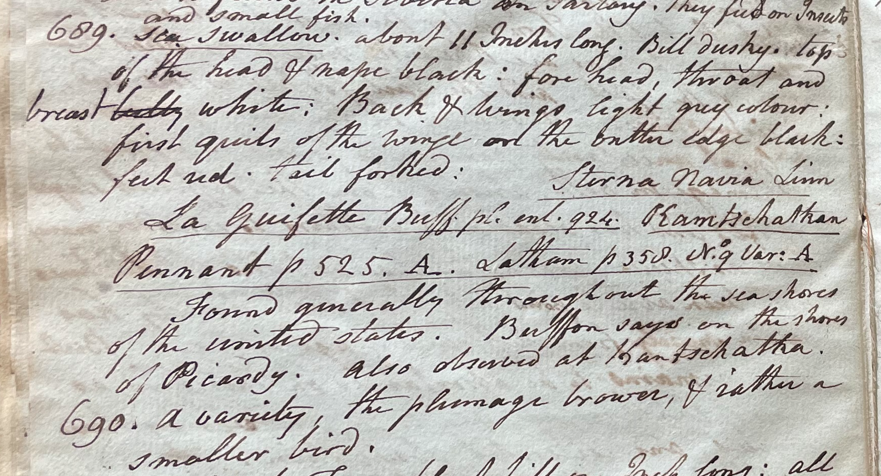 in Siberia on Tartary. They feed on Insects
and small fish.
689. sea swallow. about 11 Inches long. Bill dusky. top
of the head & nape black: fore head, throat and
breast belly white: Back & Wings light grey colour:
first quils of the wings on the outter edge black:
feet red. tail forked: Sterna Navia Linn
La Guifette Buff. pl. enl. 924. Kamtschatkan
Pennant p 525. A. Latham p 358. No. 9 Var: A
Found generally throughout the sea shores
of the united states. Buffon says on the shores
of Picardy. also observed at Kantschatka.
690. A variety, the plumage brower, & rather a
smaller bird.
Inch long: all